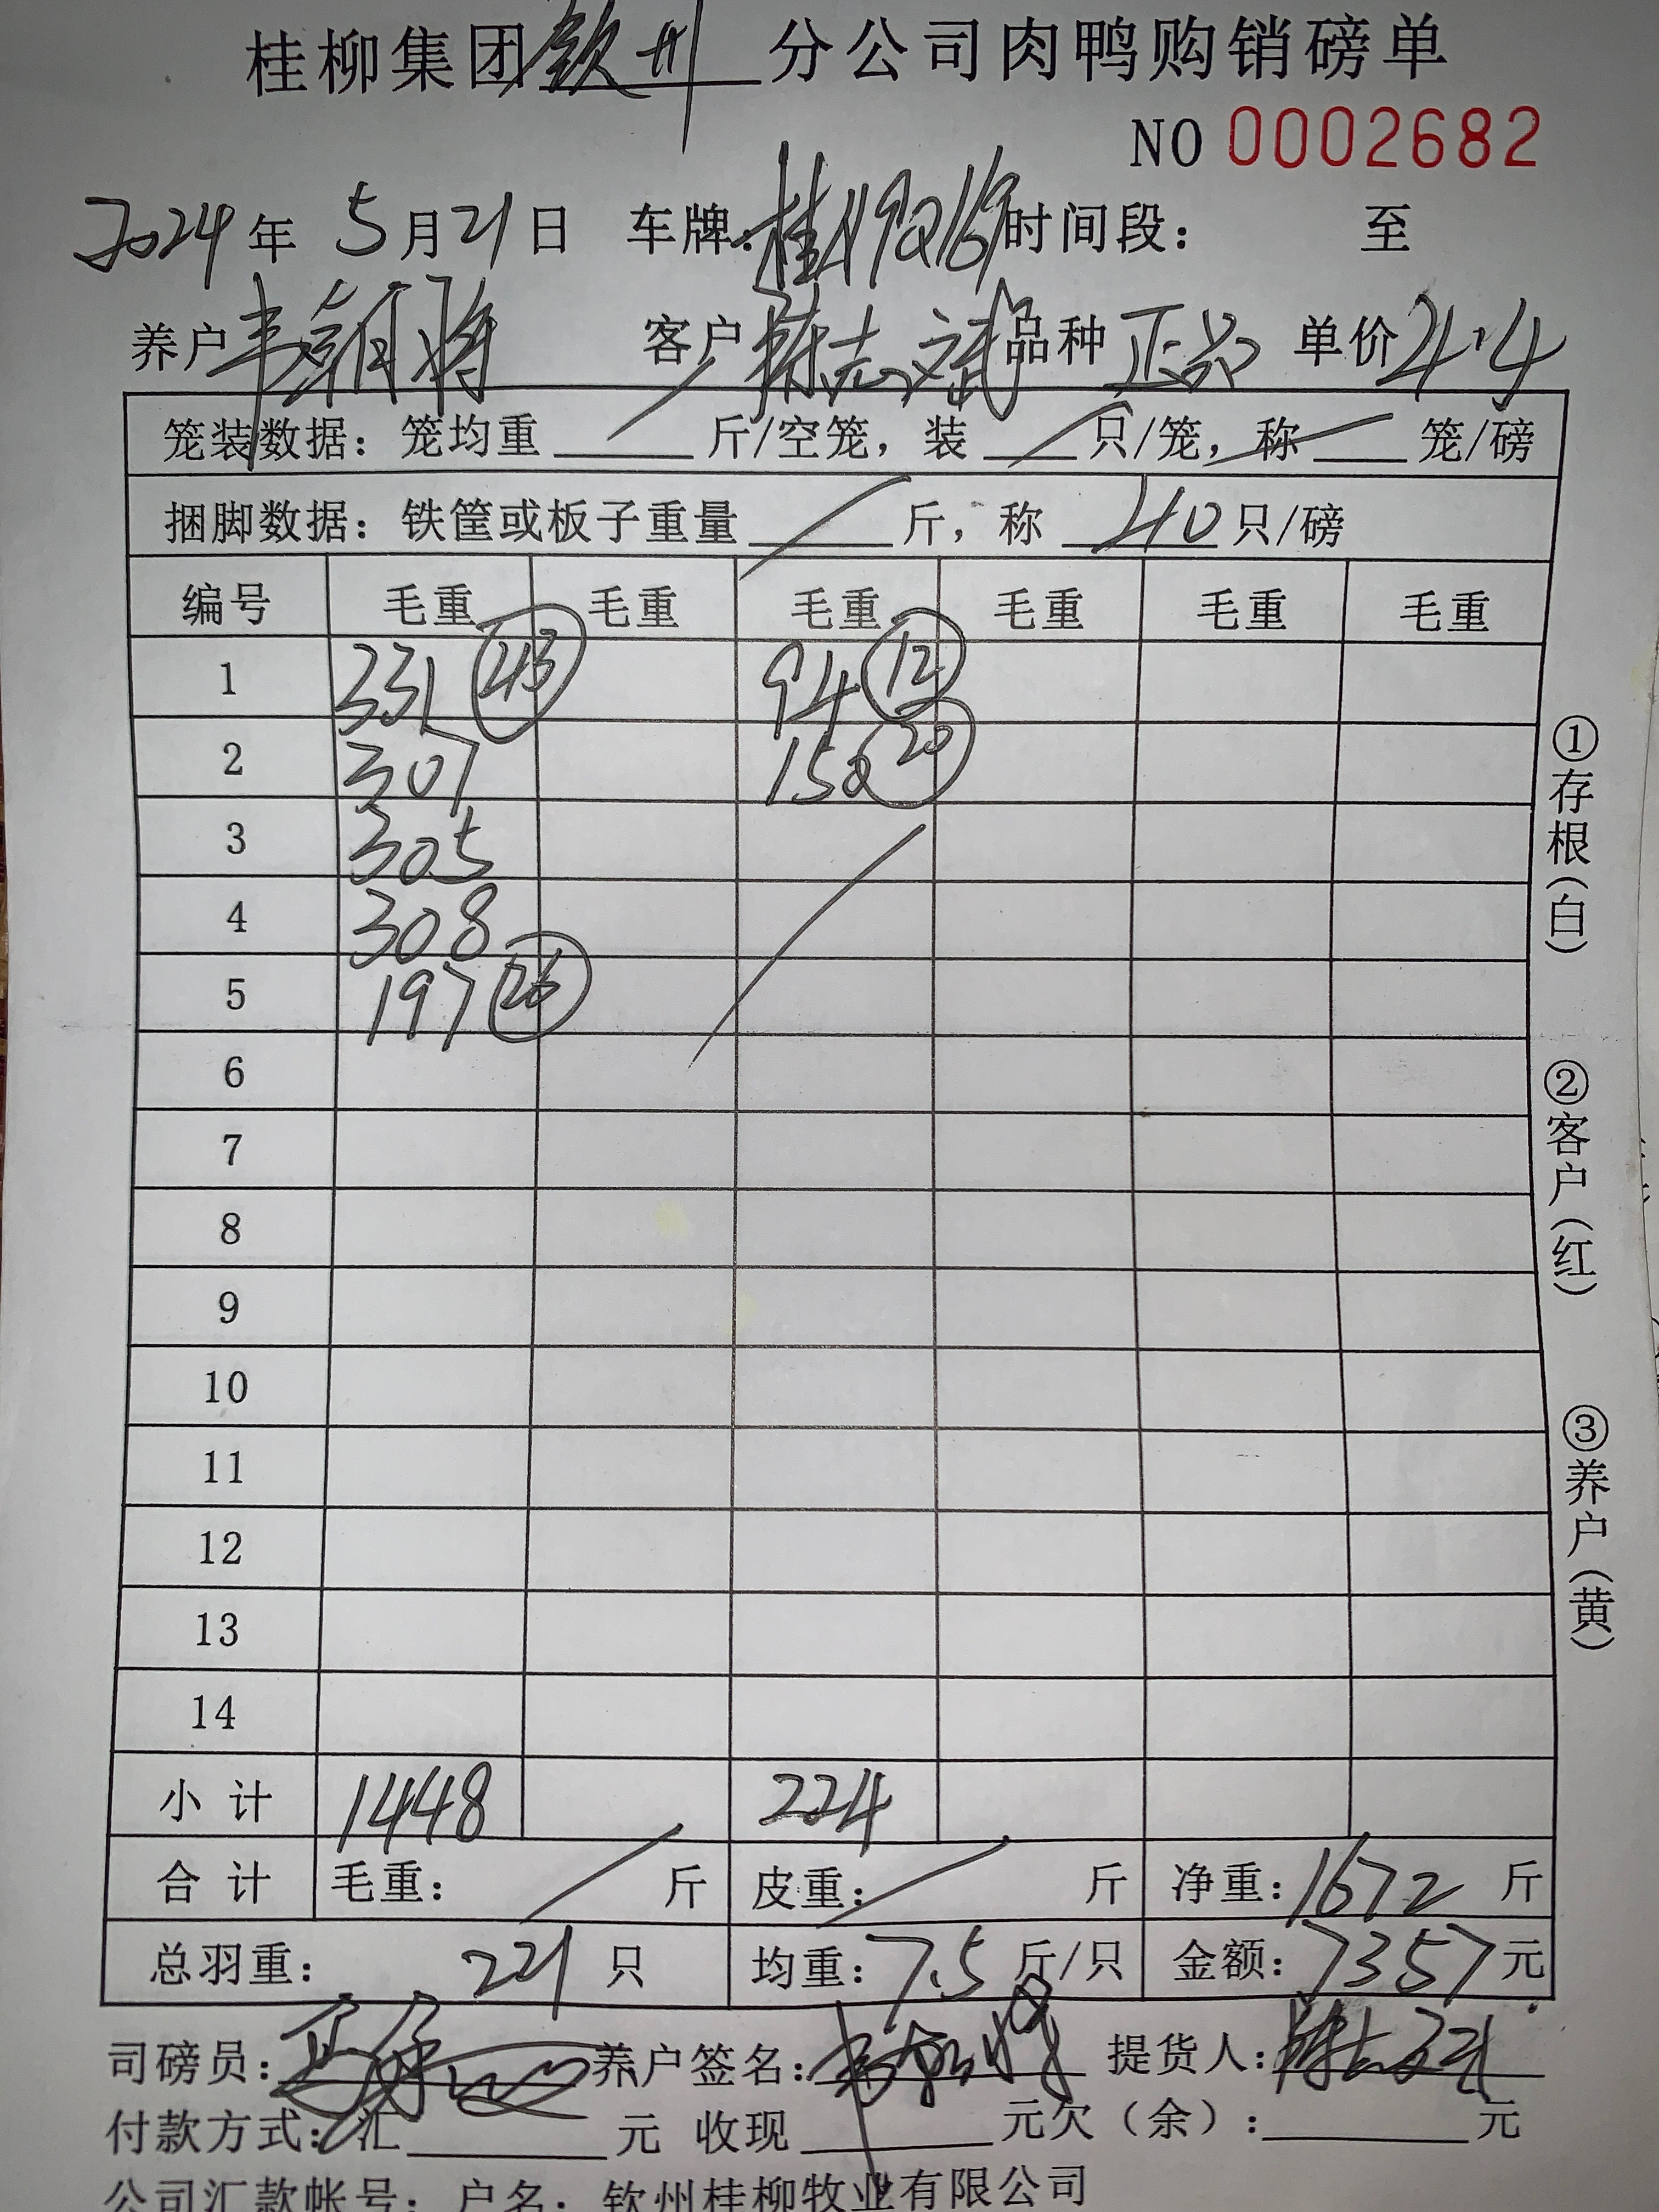 桂柳集团钦州分公司肉鸭购销磅单
NO 0002682
2024年 5月21日 车牌: 桂 时间段: 至
养户 韦 将 客户 陈志斌 品种 正品 单价 4.4
笼装数据: 笼均重 / 斤/空笼, 装 / 只/笼, 称 / 笼/磅
捆脚数据: 铁筐或板子重量 / 斤, 称 40 只/磅
编号 毛重 毛重 毛重 毛重 毛重 毛重
1 331 (43) 94 (12)
2 307 150 (20)
3 305
4 308
5 197 (26)
6
7
8
9
10
11
12
13
14
小计 1448 224
合计 毛重: / 斤 皮重: / 斤 净重: 1672 斤
总羽重: 221 只 均重: 7.5 斤/只 金额: 7357 元
司磅员: 养户签名: 提货人:
付款方式: 汇 元 收现 元欠(余): 元
公司汇款帐号: 户名: 钦州桂柳牧业有限公司
①存根(白)
②客户(红)
③养户(黄)